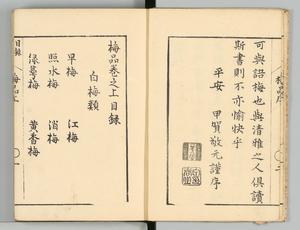 可與語梅也與清雅之人俱讀
斯書則不亦愉快乎
平安 甲賀敬元謹序
梅品卷之上目録
白梅類
早梅 江梅
照水梅 消梅
綠萼梅 黄香梅
目録